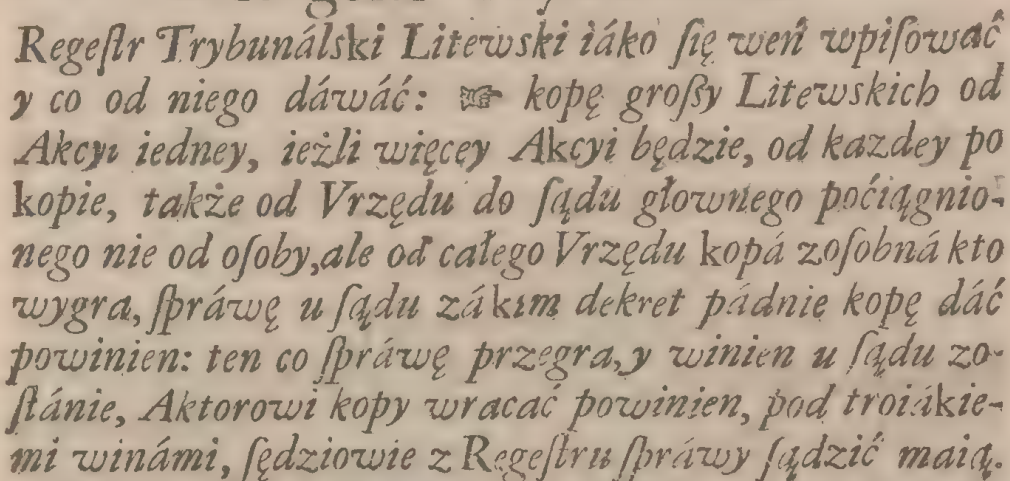 Regeſtr Trybunálski Litewski iáko ſię weń wpiſowáć
y co od niego dáwáć: ☞ kopę groſſy Litewskich od
Akcyi iedney, ieżli więcey Akcyi będzie, od kazdey po
kopie, także od Vrzędu do ſądu głownego poćiągnio-
nego nie od oſoby, ale od całego Vrzędu kopá zoſobná kto
wygra, ſpráwę u ſądu zá kim dekret pádnie kopę dáć
powinien: ten co ſpráwę przegra, y winien u ſądu zo-
ſtánie, Aktorowi kopy wracać powinien, pod troiákie-
mi winámi, ſędziowie z Regeſtru ſpráwy ſądzić maią.